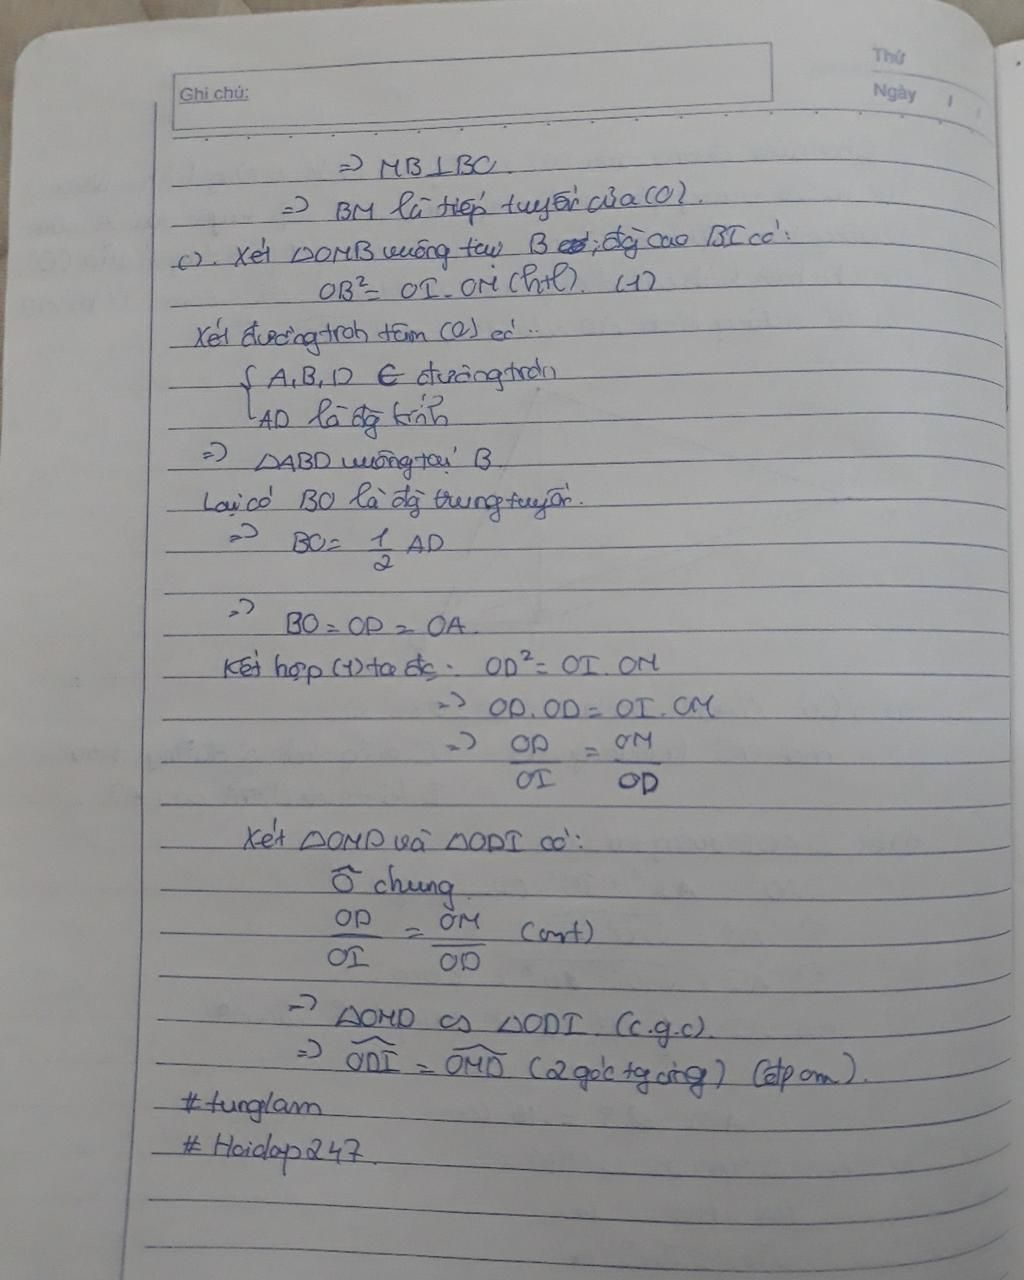 Thứ
Ghi chú:
Ngày / /
=> MB⊥BO.
=> BM là tiếp tuyến của (O).
c). Xét ΔOMB vuông tại B ; đg cao BI có:
OB² = OI. OM (htl). (1)
Xét đường tròn tâm (O) có:
{ A, B, D ∈ đường tròn
AD là đg kính
=> ΔABD vuông tại B.
Lại có BO là đg trung tuyến.
=> BO = 1/2 AD
=> BO = OD = OA.
Kết hợp (1) ta đc: OD² = OI. OM
=> OD. OD = OI. OM
=> OD/OI = OM/OD
Xét ΔOMD và ΔODI có:
Ô chung
OD/OI = OM/OD (cmt)
=> ΔOMD ∽ ΔODI. (c.g.c).
=> ODI = OMD (2 góc tg ứng) (đpcm).
#tunglam
# Hoidap247.